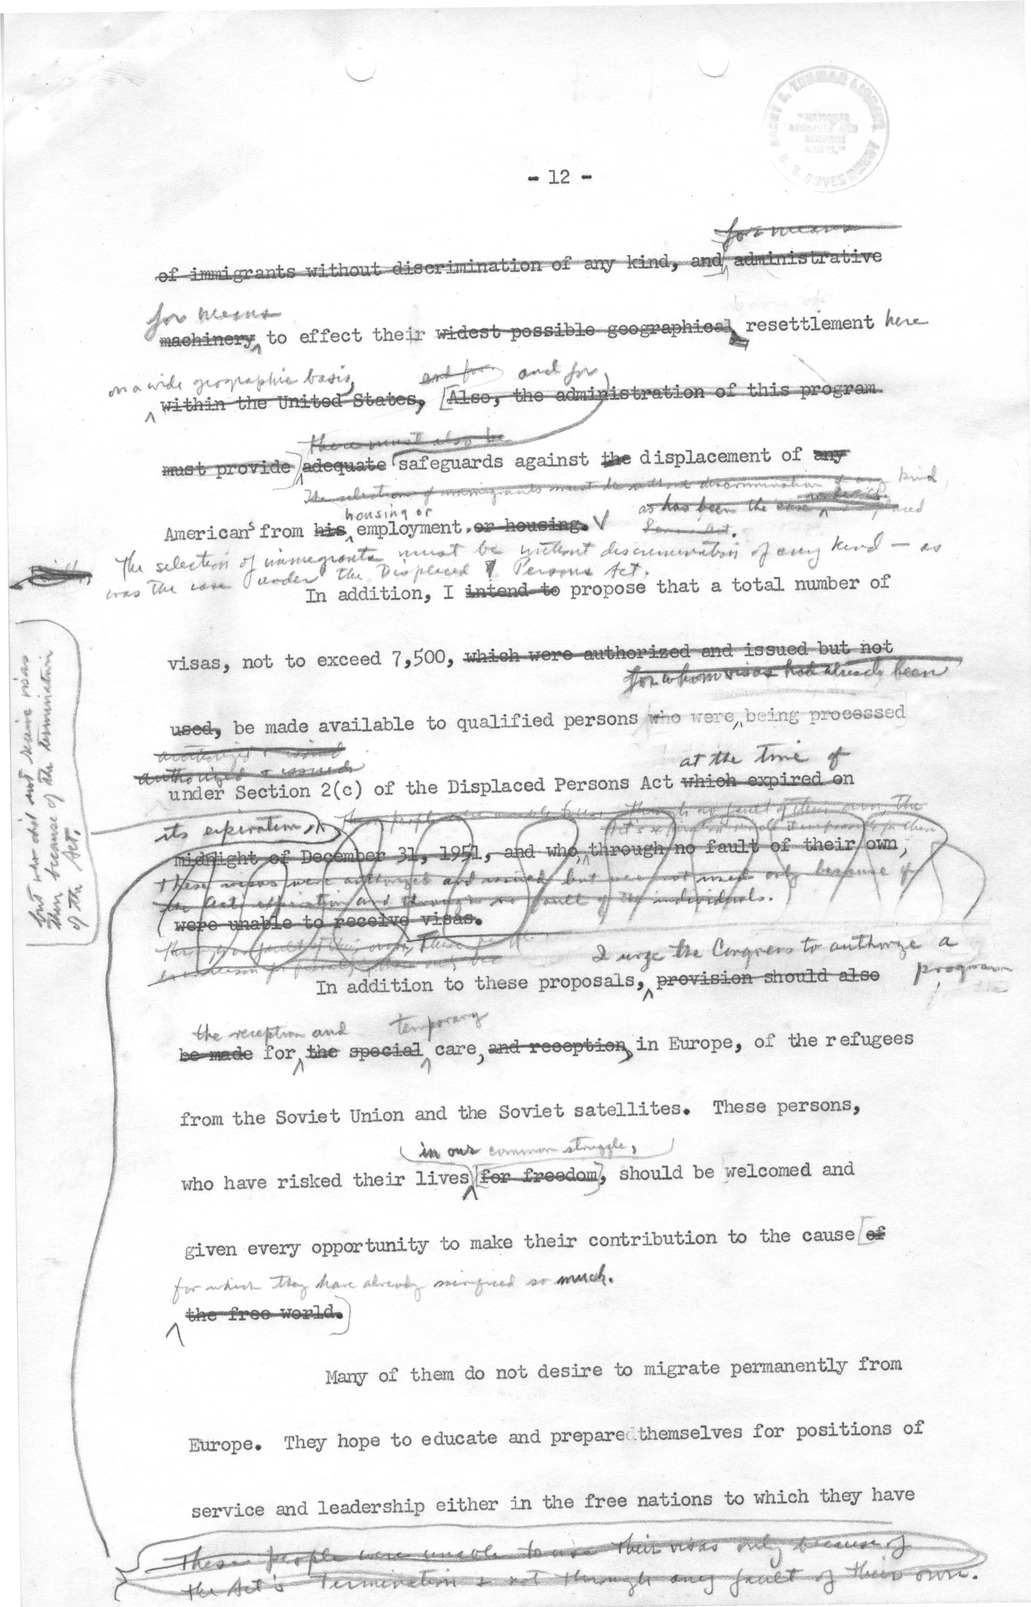 - 12 -
for means
of immigrants without discrimination of any kind, and administrative
for means
machinery to effect their widest possible geographical resettlement here
on a wide geographic basis, and for and for
within the United States, [Also, the administration of this program
there must also be
must provide adequate safeguards against the displacement of any
The selection of immigrants must be without discrimination of any kind,
housing or as has been the case
Americans from his employment. or housing.
The selection of immigrants must be without discrimination of any kind — as
was the case under the Displaced Persons Act.
In addition, I intend to propose that a total number of
visas, not to exceed 7,500, which were authorized and issued but not
for whom visas had already been
used, be made available to qualified persons who were being processed
authorized & issued
authorized & issued at the time of
under Section 2(c) of the Displaced Persons Act which expired on
its expiration
midnight of December 31, 1951, and who through no fault of their own,
these visas were authorized and issued but were not used only because of
the Act's expiration and through no fault of the individuals.
were unable to receive visas.
but who did not receive visas
then because of the termination
of the Act.
I urge the Congress to authorize a
program
In addition to these proposals, provision should also
the reception and temporary
be made for the special care, and reception, in Europe, of the refugees
from the Soviet Union and the Soviet satellites. These persons,
in our common struggle,
who have risked their lives [for freedom], should be welcomed and
given every opportunity to make their contribution to the cause [of
for which they have already sacrificed so much.
the free world.]
Many of them do not desire to migrate permanently from
Europe. They hope to educate and prepare themselves for positions of
service and leadership either in the free nations to which they have
These people were unable to use their visas only because of
the Act's termination & not through any fault of their own.